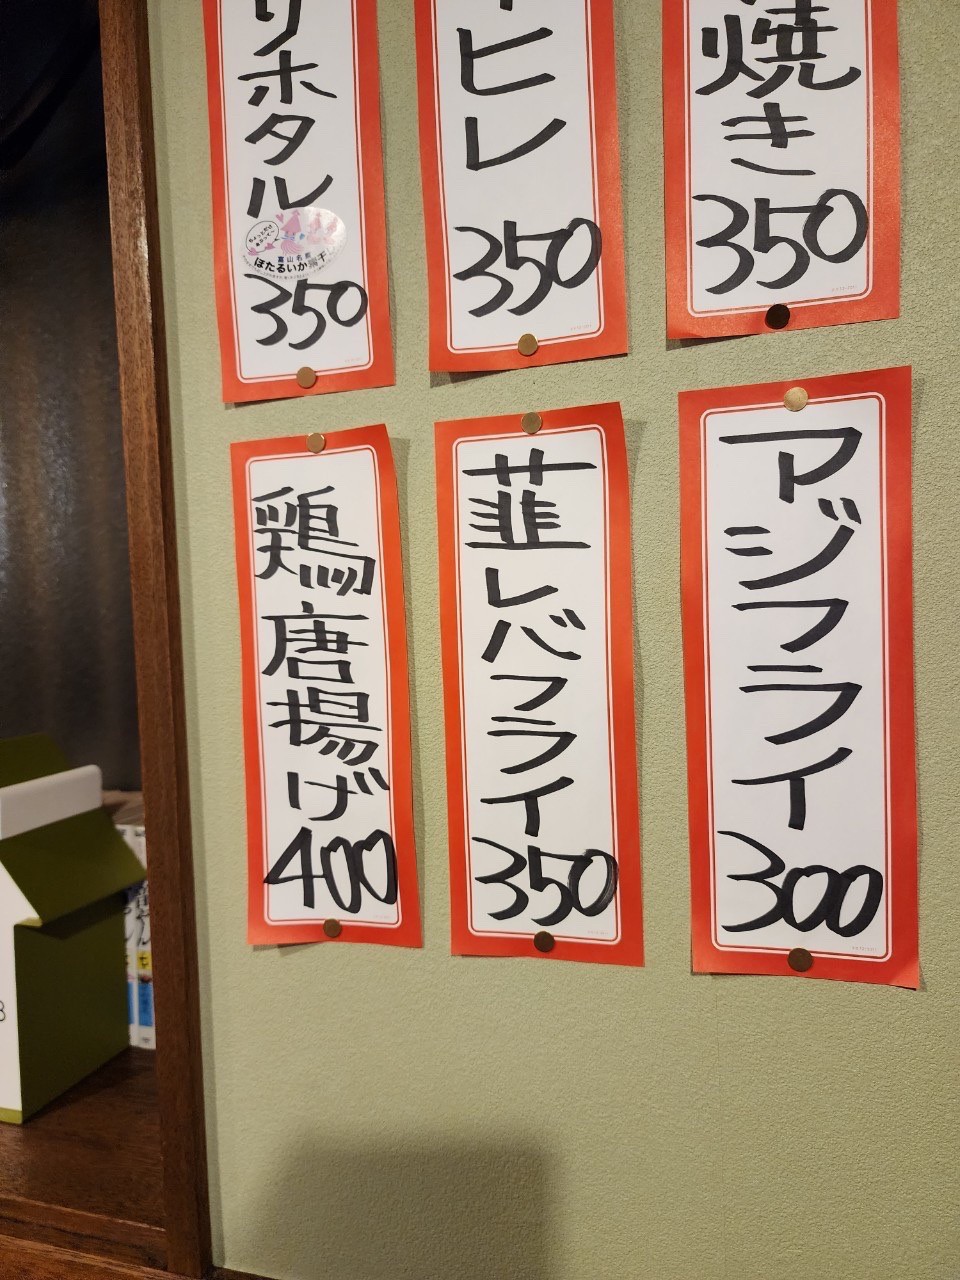 焼き
350
ヒレ
350
りホタル
富山名産
ほたるいか素干
350
アジフライ
300
韮レバフライ
350
鶏唐揚げ
400